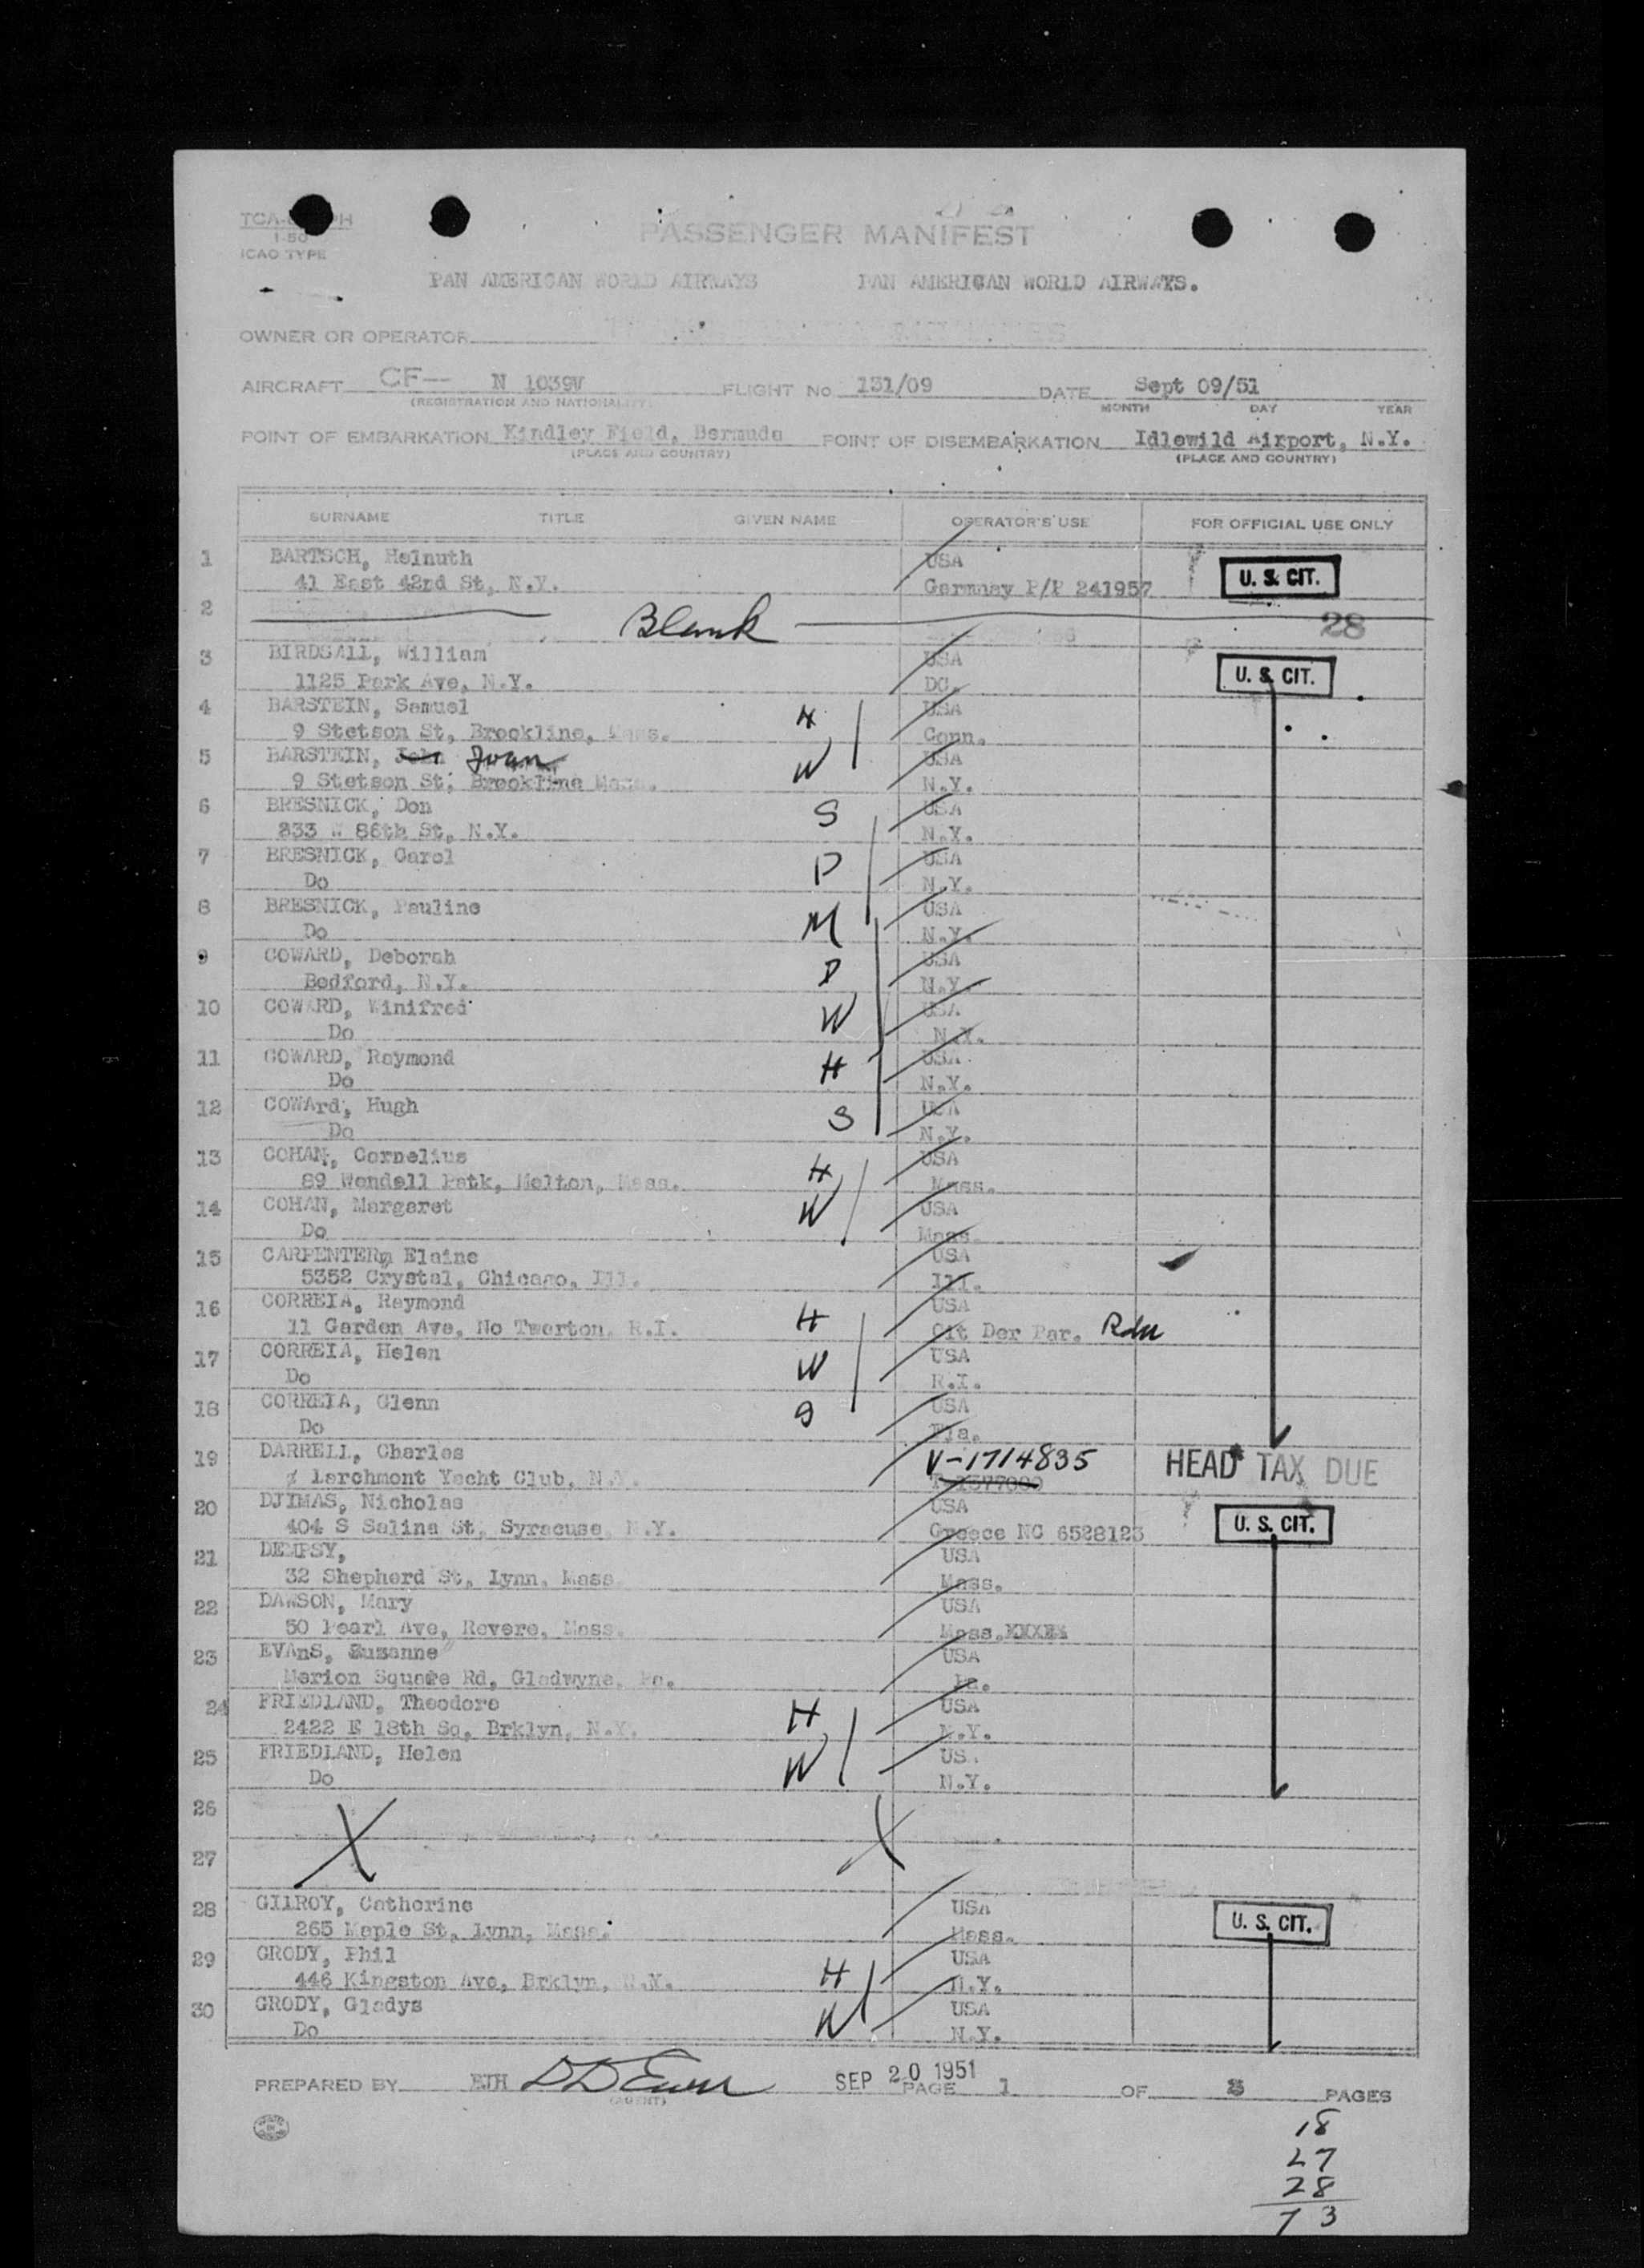 1-50
ICAO TYPE
PASSENGER MANIFEST
PAN AMERICAN WORLD AIRWAYS PAN AMERICAN WORLD AIRWAYS.
OWNER OR OPERATOR
AIRCRAFT CF-- N 1039V FLIGHT No 131/09 DATE Sept 09/51
(REGISTRATION AND NATIONALITY) MONTH DAY YEAR
POINT OF EMBARKATION Kindley Field, Bermuda POINT OF DISEMBARKATION Idlewild Airport, N.Y.
(PLACE AND COUNTRY) (PLACE AND COUNTRY)
SURNAME TITLE GIVEN NAME OPERATOR'S USE FOR OFFICIAL USE ONLY
1 BARTSCH, Helnuth USA
41 East 42nd St, N.Y. Germnay P/P 241957 U. S. CIT.
2 Blank 28
3 BIRDSALL, William USA
1125 Park Ave, N.Y. DC. U. S. CIT.
4 BARSTEIN, Samuel H USA
9 Stetson St, Brookline, Mass. Conn.
5 BARSTEIN, John Joan W USA
9 Stetson St, Brookline Mass. N.Y.
6 BRESNICK, Don S USA
333 W 86th St, N.Y. N.Y.
7 BRESNICK, Carol D USA
Do N.Y.
8 BRESNICK, Pauline M USA
Do N.Y.
9 COWARD, Deborah D USA
Bedford, N.Y. N.Y.
10 COWARD, Winifred W USA
Do N.Y.
11 COWARD, Raymond H USA
Do N.Y.
12 COWArd, Hugh S USA
Do N.Y.
13 COHAN, Cornelius H USA
89 Wendell Patk, Melton, Mass. Mass.
14 COHAN, Margaret W USA
Do Mass.
15 CARPENTER, Elaine USA
5352 Crystal, Chicago, Ill. Ill.
16 CORREIA, Raymond H USA
11 Garden Ave, No Twerton, R.I. Cit Der Par. Rdm
17 CORREIA, Helen W USA
Do R.I.
18 CORREIA, Glenn S USA
Do Fla.
19 DARRELL, Charles V-1714835 HEAD TAX DUE
% Larchmont Yacht Club, N.Y.
20 DJIMAS, Nicholas USA
404 S Salina St, Syracuse, N.Y. Greece NC 6528123 U. S. CIT.
21 DEMPSY, USA
32 Shepherd St, Lynn, Mass. Mass.
22 DAWSON, Mary USA
50 Pearl Ave, Revere, Mass. Mass.
23 EVAnS, Suzanne USA
Merion Square Rd, Gladwyne, Pa. Pa.
24 FRIEDLAND, Theodore H USA
2422 E 18th Sq, Brklyn, N.Y. N.Y.
25 FRIEDLAND, Helen W US
Do N.Y.
26
27
28 GILROY, Catherine USA
265 Maple St, Lynn, Mass. Mass. U. S. CIT.
29 GRODY, Phil H USA
446 Kingston Ave, Brklyn, N.Y. N.Y.
30 GRODY, Gladys W USA
Do N.Y.
PREPARED BY SEP 20 1951 PAGE 1 OF 3 PAGES
(AGENT)
18
27
28
73